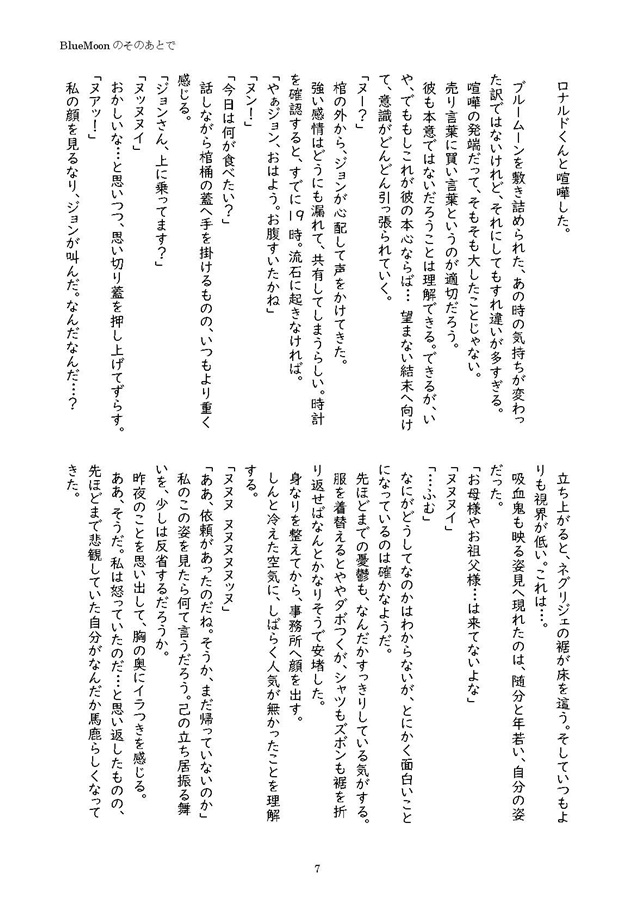 BlueMoon のそのあとで
ロナルドくんと喧嘩した。
ブルームーンを敷き詰められた、あの時の気持ちが変わっ
た訳ではないけれど、それにしてもすれ違いが多すぎる。
喧嘩の発端だって、そもそも大したことじゃない。
売り言葉に買い言葉というのが適切だろう。
彼も本意ではないだろうことは理解できる。できるが、い
や、でももしこれが彼の本心ならば… 望まない結末へ向け
て、意識がどんどん引っ張られていく。
「ヌー?」
棺の外から、ジョンが心配して声をかけてきた。
強い感情はどうにも漏れて、共有してしまうらしい。時計
を確認すると、すでに19時。流石に起きなければ。
「やぁジョン、おはよう。お腹すいたかね」
「ヌン!」
「今日は何が食べたい?」
話しながら棺桶の蓋へ手を掛けるものの、いつもより重く
感じる。
「ジョンさん、上に乗ってます?」
「ヌッヌヌイ」
おかしいな…と思いつつ、思い切り蓋を押し上げてずらす。
「ヌアッ!」
私の顔を見るなり、ジョンが叫んだ。なんだなんだ…?
立ち上がると、ネグリジェの裾が床を這う。そしていつもよ
りも視界が低い。これは…。
吸血鬼も映る姿見へ現れたのは、随分と年若い、自分の姿
だった。
「お母様やお祖父様…は来てないよな」
「ヌヌヌイ」
「…ふむ」
なにがどうしてなのかはわからないが、とにかく面白いこと
になっているのは確かなようだ。
先ほどまでの憂鬱も、なんだかすっきりしている気がする。
服を着替えるとややダボつくが、シャツもズボンも裾を折
り返せばなんとかなりそうで安堵した。
身なりを整えてから、事務所へ顔を出す。
しんと冷えた空気に、しばらく人気が無かったことを理解
する。
「ヌヌヌ ヌヌヌヌヌッヌ」
「ああ、依頼があったのだね。そうか、まだ帰っていないのか」
私のこの姿を見たら何て言うだろう。己の立ち居振る舞
いを、少しは反省するだろうか。
昨夜のことを思い出して、胸の奥にイラつきを感じる。
ああ、そうだ。私は怒っていたのだ…と思い返したものの、
先ほどまで悲観していた自分がなんだか馬鹿らしくなって
きた。
7